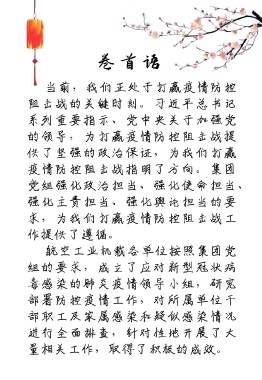 卷首语
当前，我们正处于打赢疫情防控
阻击战的关键时刻。习近平总书记
系列重要指示、党中央关于加强党
的领导，为打赢疫情防控阻击战提
供了坚强的政治保证，为我们打赢
疫情防控阻击战指明了方向。集团
党组强化政治担当、强化使命担当、
强化主责担当、强化舆论担当的要
求，为我们打赢疫情防控阻击战工
作提供了遵循。
航空工业机载各单位按照集团党
组的要求，成立了应对新型冠状病
毒感染的肺炎疫情领导小组，研究
部署防控疫情工作，对所属单位干
部职工及家属感染和疑似感染情况
进行全面排查，针对性地开展了大
量相关工作，取得了积极的成效。